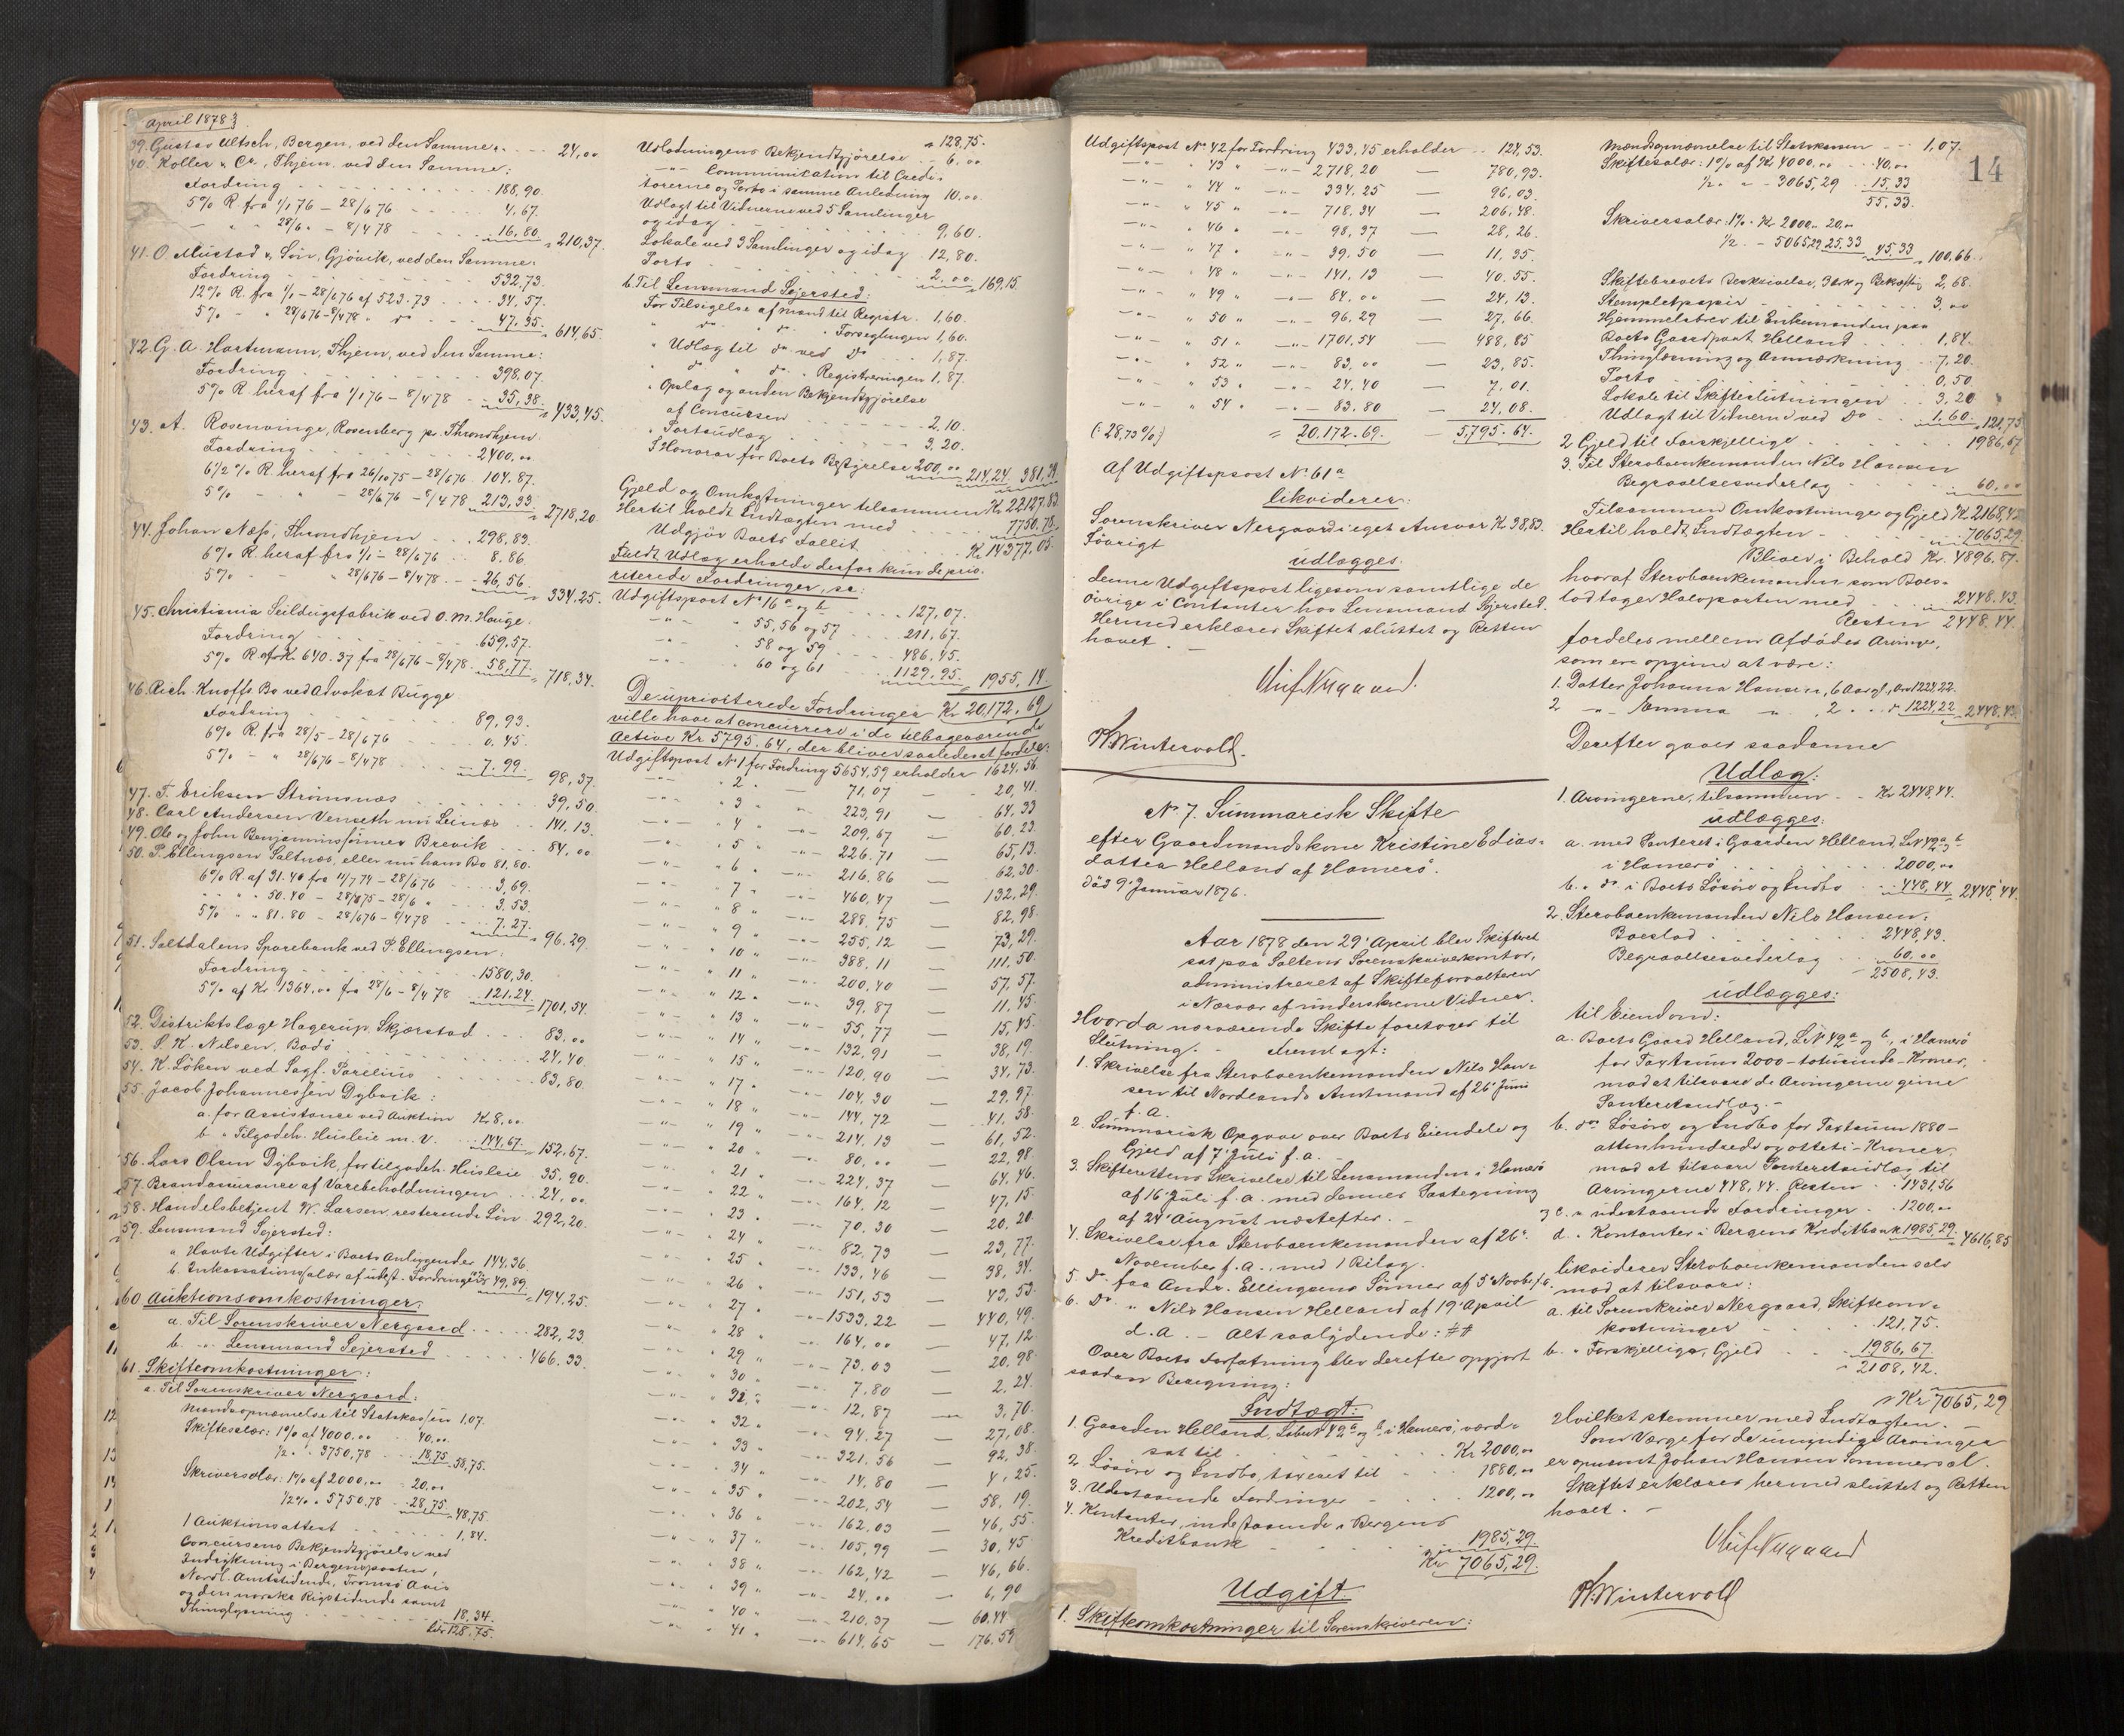 April 1878
39. Gustav Altsch, Bergen, ved den Samme 24,00
40. Koller & Co., Thjem, ved den Samme:
Fordring 188,90.
5% R. fra 1/1 76 – 28/6 76 4,67.
28/6 – 8/4 78 16,80 210,37.
41. O. Mustad & Søn, Gjövik, ved den Samme:
Fordring 532,73.
12% R. fra 1/1 – 28/6 76 af 523.73 34,57.
5% – " 28/6 76 – 8/4 78 " do 47,35. 614,65.
42. G. A. Hartmann, Thjem, ved den Samme:
Fordring 398,07.
5% R. heraf fra 1/1 76 – 8/4 78 35,38. 433,45.
43. A. Rosenvinge, Rosenberg pr. Throndhjem.
Fordring 2400,00
6 1/2 % R. heraf fra 26/10 75 – 28/6 76 104.87.
5% – – 28/6 76 – 8/4 78 213,33 2718,20.
44. Johan Næss, Throndhjem 298,83.
6% R. heraf fra 1/1 – 28/6 76 8.86.
5% – 28/6 76 – 8/4 78 26,56. 334,25.
45. Christiania Seildugsfabrik ved O. M. Hauge.
Fordring 659,57.
5% R. af Kr. 640.37 fra 28/6 76 – 8/4 78 58,77. 718,34.
46. Rich. Knoffs Bo ved Advokat Bugge
Fordring 89,93.
6% R. fra 28/5 – 28/6 76 0.45.
5% – " 28/6 76 – 8/4 78 7.99 98,37.
47. T. Eriksen Strömsnæs 39,50.
48. Carl Andersen Venseth nu Leinæs 141,13.
49. Ole og John Benjaminssönner Brevik 84,00
50. P. Ellingsen Saltnæs, eller nu hans Bo 81,80.
6% R. af 31.40 fra 11/7 74 – 28/6 76 3,69.
" " 50.40 – 28/8 75 – 28/6 " 3,53.
5% " " 81.80 – 28/6 76 – 8/4 78 7.27. 96.29.
51. Saltdalens Sparebank ved P. Ellingsen.
Fordring 1580,30.
5% af Kr. 1364,00 fra 28/6 – 8/4 78 121,24. 1701,54.
52. Distriktslæge Hagerup, Skjerstad 83,00
53. S. K. Nilsen, Bodö 24.40.
54. K. Löken ved Sagf. Parelius 83,80.
55. Jacob Johannessen Dybvik:
a. for Assistance ved Auktion Kr. 8,00
b. " Tilgodeh. Husleie m. V. 144,67. 152,67.
56. Lars Olsen Dybvik, for tilgodeh. Husleie 35,90.
57. Brandassurance af Varebeholdningen 24,00
58. Handelsbetjent W. Larsen, resterende Løn 292,20.
59. Lensmand Sejersted:
a Havte Udgifter i Boets Anliggender 144,36.
b. Inkassationssalær af udest. Fordringer 49,89. 194.25.
60. Auktionsomkostninger.
a. Til Sorenskriver Nergaard 282,23
b. " Lensmand Sejersted 466.33.
61. Skifteomkostninger:
a. Til Sorenskriver Nergaard:
Mandsopnævnelse til Statskassen 1,07.
Skiftesalær: 1% af 4000,00 40,00
1/2 " " 3750,78 18,75 58,75.
Skriversalær: 1% af 2000,00 20,00
1/2% " 5750,78 28,75 48,75.
1 Auktionsattest 1,84.
Concursens Bekjendtgjörelse ved
Indrykning i Bergensposten,
Nordl. Amtstidende, Tromsö Avis
og den norske Rigstidende samt
Thinglysning 18,34.
Lat. 128,75.
128,75.
Udlodningens Bekjendtgjörelse 6,00
Communication til Credi-
torerne og Porto i samme Anledning 10,00
Udlagt til Vidnerne ved 5 Samlinger
og idag 9,60.
Lokale ved 3 Samlinger og idag 12,80.
Porto 2,00 169,15.
b. Til Lensmand Sejersted:
For Tilsigelse af Mænd til Registr. 1,60.
" do " do " Forseglingen 1,60.
" Udlæg til do ved do 1,87.
" do " do " Registreringen 1,87.
" Opslag og anden Bekjendtgjörelse
af Concursen 2,10.
" Portoudlæg 3,20.
" Honorar for Boets Bestyrelse 200,00 214,24 381,39
Gjeld og Omkostninger tilsammen Kr. 22127.83
Hertil holdt Indtægten med 7750.78.
Udgjör Boets Fallit Kr. 14377.05.
Fuldt Udlæg erholde derfor kun de prio-
riterede Fordringer, se:
Udgiftspost No 16 a og b 127,07.
" 55, 56 og 57 211,67.
" 58 og 59 486,45.
" 60 og 61 1129,95. 1955,14.
De upriorterede Fordringer Kr. 20,172,69
ville have at concurrere i de tilbageværende
Active Kr 5795.64, der bliver saaledes at fordele:
Udgiftspost No 1 for Fordring 5654,59 erholder 1624,56.
2 71,07 20,41.
3 223,91 64,33
4 209,67 60.23.
5 226.71 65,13.
6 216,86 62,30.
7 460,47 132,29.
8 288,75 82,98.
9 255,12 73,29.
10 388,11 111,50.
11 200,40 57,57.
12 39,87 11,45.
13 55,77 15,45.
14 132,91 38,19.
15 120,90 34,73.
17 104,30 29,97.
18 144,72 41,58.
19 214,13 61,52.
20 80,00 22,98.
21 224,37 64,46.
22 164,12 47,15.
23 70,30 20,20.
24 82,73 23,77.
25 133,46 38,34.
26 151,53 43,53.
27 1533,22 440,49.
28 164,00 47,12.
29 73.03 20,98.
30 7,80 2,24.
31 12,87 3,70.
32 94,27 27,08.
33 321,56 92,38.
34 14,80 4,25.
35 202,54 58,19.
36 162,03 46,55.
37 105,99 30,45.
38 162,42 46,66.
39 24,00 6,90
40 210,37 60.44
41 614,65 176,59
Udgiftspost No 42 for Fordring 433,45 erholder 124,53.
43 2718,20 780,93.
44 334,25 96,03.
45 718.34 206,48.
46 98,37 28,26.
47 39,50 11,35.
48 141,13 40.55.
49 84,00 24,13.
50 96.29 27,66.
51 1701,54 488,85
52 83,00 23,85.
53 24.40 7,01.
54 83.80 24,08.
(: 28,73% :) 20,172.69. 5,795.64.
Af Udgiftspost No 61 a
likviderer:
Sorenskriver Nergaard i eget Ansvar Kr. 38,83.
Iövrigt
udlægges:
denne Udgiftspost ligesom samtlige de
övrige i Contanter hos Lensmand Sejersted.
Hermed erklæres Skiftet sluttet og Retten
hævet.
Wintervold.
No 7. Summarisk Skifte
efter Gaardmandskone Kristine Edias-
datter Helland af Hamerö.
död 9' Januar 1876.
Aar 1878 den 29' April blev Skifteret
sat paa Saltens Sorenskriverkontor,
administreret af Skifteforvalteren
i Nærvær af underskrevne Vidner.
Hvorda nærværende Skifte foretoges til
Slutning. Fremlagt:
1. Skrivelse fra Sterboenkemanden Nils Han-
sen til Nordlands Amtmand af 26' Juni
f. a.
2. Summarisk Opgave over Boets Eiendele og
Gjeld af 7' Juli f. a.
3. Skifterettens Skrivelse til Lensmanden i Hamerö
af 16' Juli f. a. med dennes Paategning
af 24' August næstefter.
4. Skrivelse fra Sterboenkemanden af 26'
November f. a., med 1 Bilag.
5. do fra Andr. Ellingsens Sönner af 5' Novbr. f. a.
6. do " Nils Hansen Helland af 19' April
d. a. – Alt saalydende: ##
Over Boets Forfatning blev derefter opgjort
saadan Beregning:
Indtægt:
1. Gaarden Helland, Löbe No 42 a og b i Hamerö, værd-
sat til Kr 2000,00
2. Lösöre og Indbo, taxeret til 1880,00
3. Udestaaende Fordringer 1200,00
4. Kontanter, indestaaende i Bergens
Kreditbank 1985,29.
Kr 7065,29.
Udgift.
1. Skifteomkostninger til Sorenskriveren:
14
Mandsopnævnelse til Statskassen 1,07.
Skiftesalær: 1% af Kr 4000,00 40,00
1/2 " – 3065,29 15,33
55,33.
Skriversalær: 1% Kr 2000,00 20,00
1/2 – 5065,29 25,33 45,33 100,66.
Skiftebrevets Beskrivelse, Seks og Bekræft. 2,68.
Stempletpapir 3,00
Hjemmelsbrev til Enkemanden paa
Boets Gaardpart Helland 1,84.
Thinglæsning og Anmærkning 7,20.
Porto 0,50
Lokale til Skifteslutningen 3,20
Udlagt til Vidnerne ved do 1,60. 121,75
2. Gjeld til Forskjellige 1986,67
3. Til Sterboenkemanden Nils Hansen
Begravelsesvederlag 60,00
Tilsammen Omkostninger og Gjeld Kr. 2168,42
Hertil holdt Indtægten 7065,29
Bliver i Behold Kr. 4896.87.
hvoraf Sterboenkemanden som Boes-
lod tager Halvparten med 2448.43.
Resten 2448.44.
fordeles mellem Afdödes Arvinger,
som ere opgivne at være:
1. Datter Johanna Hansen, 6 Aar gl., Arv 1224,22.
2 " Emma " , 2 " " do 1224,22 2448,43.
Derefter gaves saadanne
Udlæg:
1. Arvingerne, tilsammen Kr 2448,44.
udlægges:
a. med Panteret i Gaarden Helland, L. No 42 a og b
i Hamerö 2000,00
b. " do i Boets Lösöre og Indbo 448,44 2448,44.
2. Sterboenkemanden Nils Hansen:
Boeslod 2448,43.
Begravelsesvederlag 60,00
2508,43.
udlægges:
til Eiendom:
a. Boets Gaard Helland, L. No 42 a og b, i Hamerö
for Taxtsum 2000 – totusinde – Kroner,
mod at tilsvare de Arvingerne givne
Panteretsudlæg. –
b. do Lösöre og Indbo for Taxtsum 1880 –
attenhundrede og otteti – Kroner,
mod at tilsvare Panteretsudlæg til
Arvingerne 448,44. Resten 1431,56
c. " udestaaende Fordringer 1200,00
d. " Kontanter i Bergens Kreditbank 1985,29. 4616,85
likviderer Sterboenkemanden selv
mod at tilsvare:
a. til Sorenskriver Nergaard, Skifteom-
kostninger 121,75.
b. " Forskjellige, Gjeld 1986,67.
2108,42.
Kr 7065,29
Hvilket stemmer med Indtægten.
Som Værge for de umyndige Arvinger
er opnævnt Johan Hansen Sommersel.
Skiftet erklæres hermed sluttet og Retten
hævet. –
Wintervold